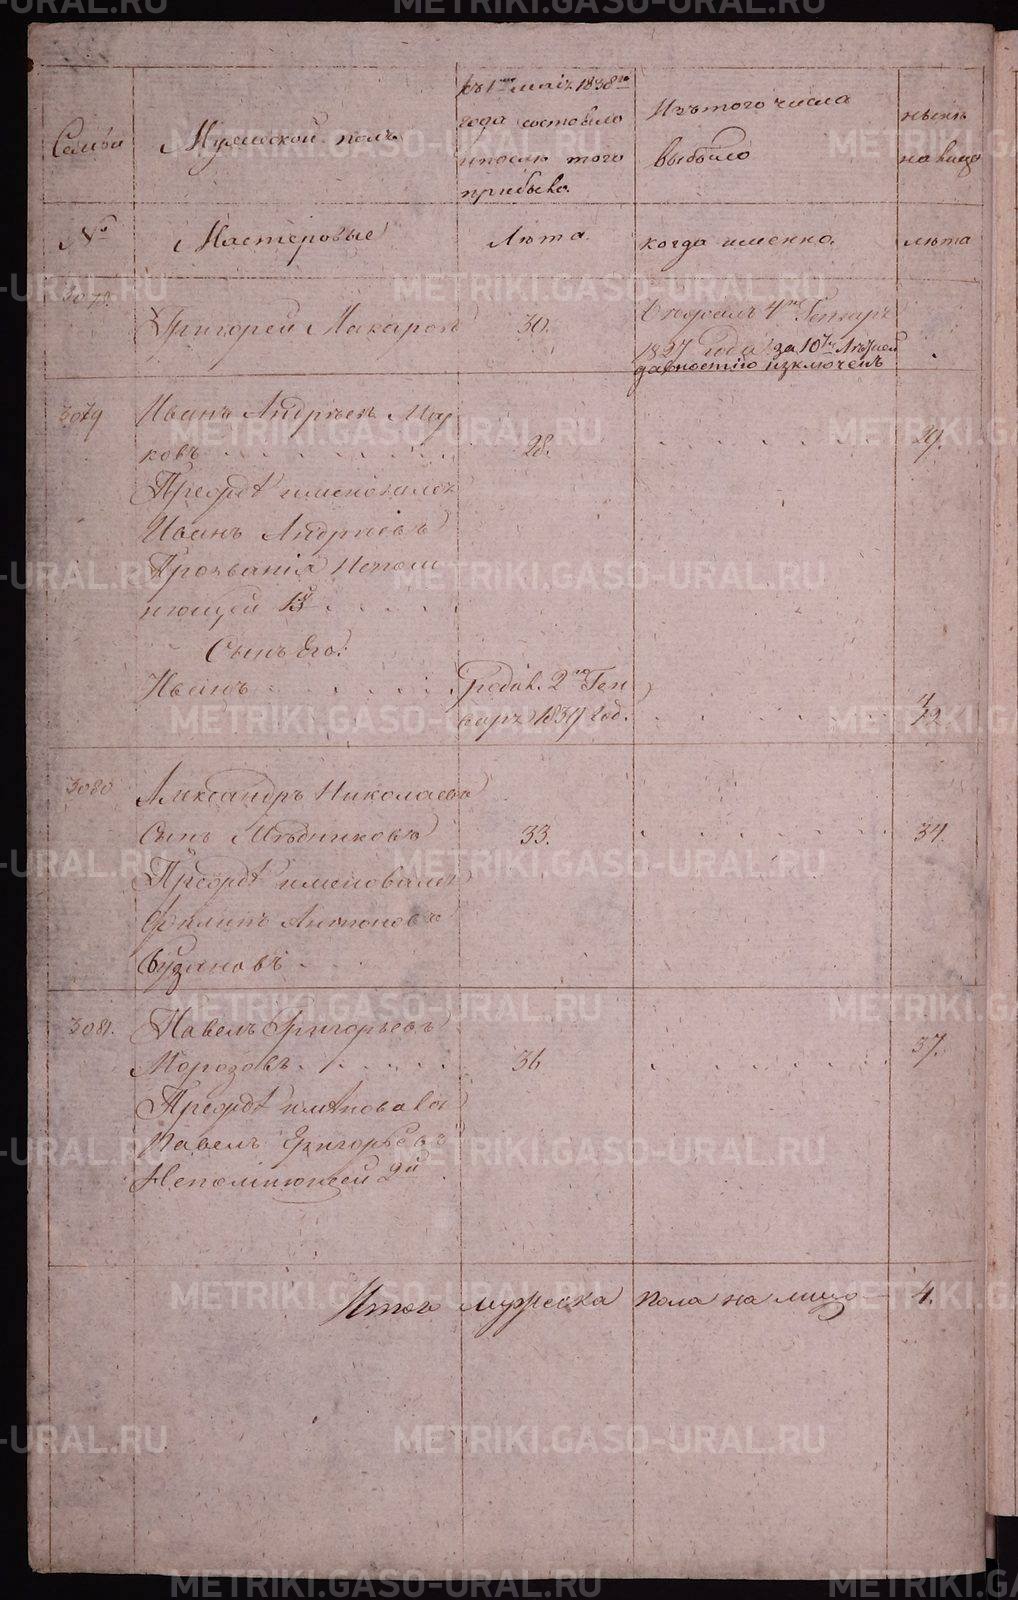 METRIKI.GASO-URAL.RU
Семьи
Мужеской полъ
къ 1му маія 1838го
года состояло
и послѣ того
прибыло.
Изъ того числа
выбыло
нынѣ
на лицо
№
Мастеровые
Лѣта.
когда именно.
лѣта
3078.
Григорей Макаровъ
30.
4го Генваря
1827 года за 10ти Лѣтней
давностію изключенъ
3079
Иванъ Андреевъ Мар
ковъ
28.
29.
Прежде именовался
Иванъ Андреевъ
Прозванія Непом
нющей 13й
Сынъ Его:
Иванъ
Родив. 2го Ген
варя 1839 год.
3080
Александръ Николаевъ
Сынъ Мѣдниковъ
33.
34.
Прежде именовался
Филипъ Антоновъ
Бузановъ
3081.
Павелъ Григорьевъ
Морозовъ
36
37.
Прежде именовался
Павелъ Григорьевъ
Непомнющей 2й
Итого мужеска пола на лицо — 4.